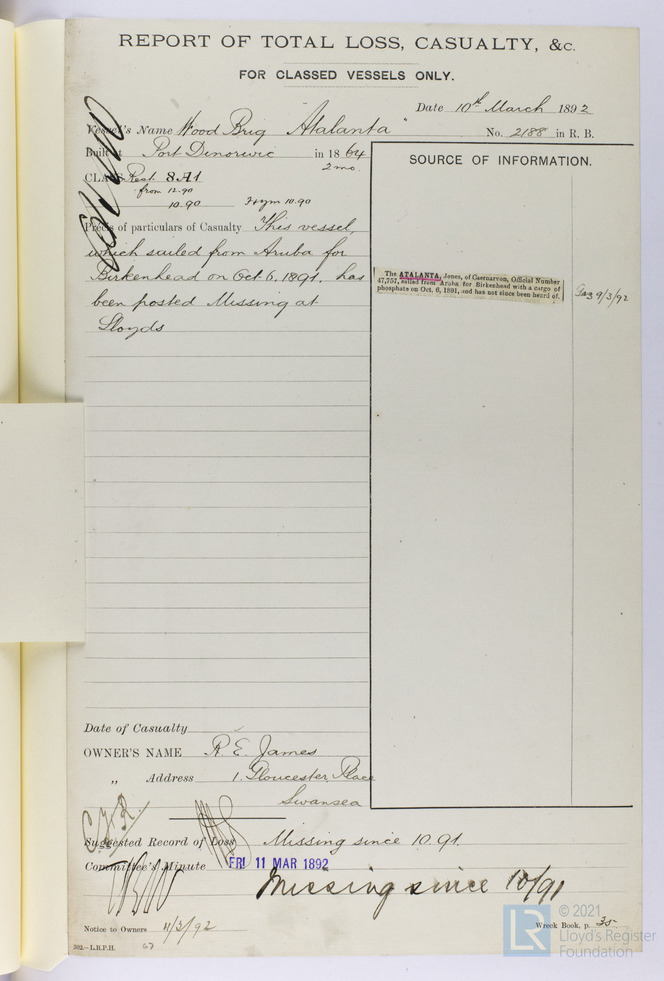 REPORT OF TOTAL LOSS, CASUALTY, &c.
FOR CLASSED VESSELS ONLY.
Date 10th March 1892
Vessel's Name Wood Brig "Atalanta"
No. 2188 in R. B.
Built at Port Dinorwic in 1864
2 mo.
CLASS Rest. 8A1
from 12.90
10.90 10.90
Précis of particulars of Casualty This vessel,
which sailed from Aruba for
Birkenhead on Oct 6, 1891, has
been posted Missing at
Lloyds
SOURCE OF INFORMATION.
The ATALANTA, Jones, of Caernarvon, Official Number
47,757, sailed from Aruba for Birkenhead with a cargo of
phosphate on Oct. 6, 1891, and has not since been heard of.
Gaz 9/3/92
Date of Casualty
OWNER'S NAME R. E. James
„ Address 1. Gloucester Place
Swansea
Suggested Record of Loss Missing since 10.91.
Committee's Minute FRI 11 MAR 1892
Missing since 10/91
Notice to Owners 11/3/92
Wreck Book, p. 35
302.—L.R.P.H. 67
© 2021
LR Lloyd's Register
Foundation